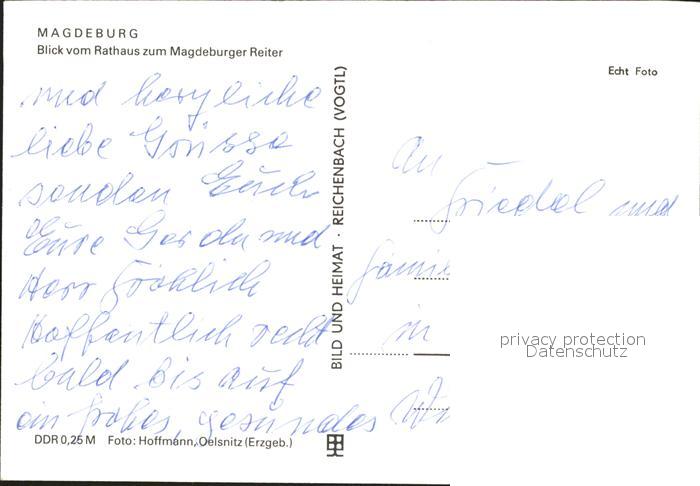 MAGDEBURG
Blick vom Rathaus zum Magdeburger Reiter
Echt Foto
und herzliche
liebe Grüsse
senden Euch
Eure Gerda und
Herr Fröhlich
Hoffentlich recht
bald bis auf
ein frohes, gesundes
DDR 0,25 M Foto: Hoffmann, Oelsnitz (Erzgeb.)
BILD UND HEIMAT · REICHENBACH (VOGTL)
An
Friedel und
Famil
in
privacy protection
Datenschutz